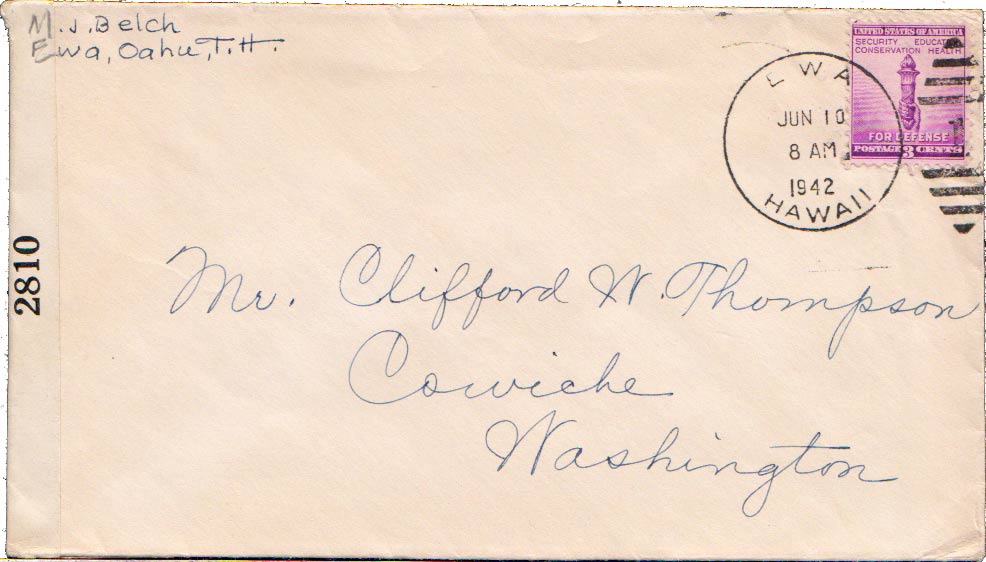 M. J. Belch
Ewa, Oahu, T.H.
UNITED STATES OF AMERICA
SECURITY EDUCATION
CONSERVATION HEALTH
FOR DEFENSE
POSTAGE 3 CENTS
EWA
JUN 10
8 AM
1942
HAWAII
2810
Mr. Clifford W. Thompson
Cowiche
Washington